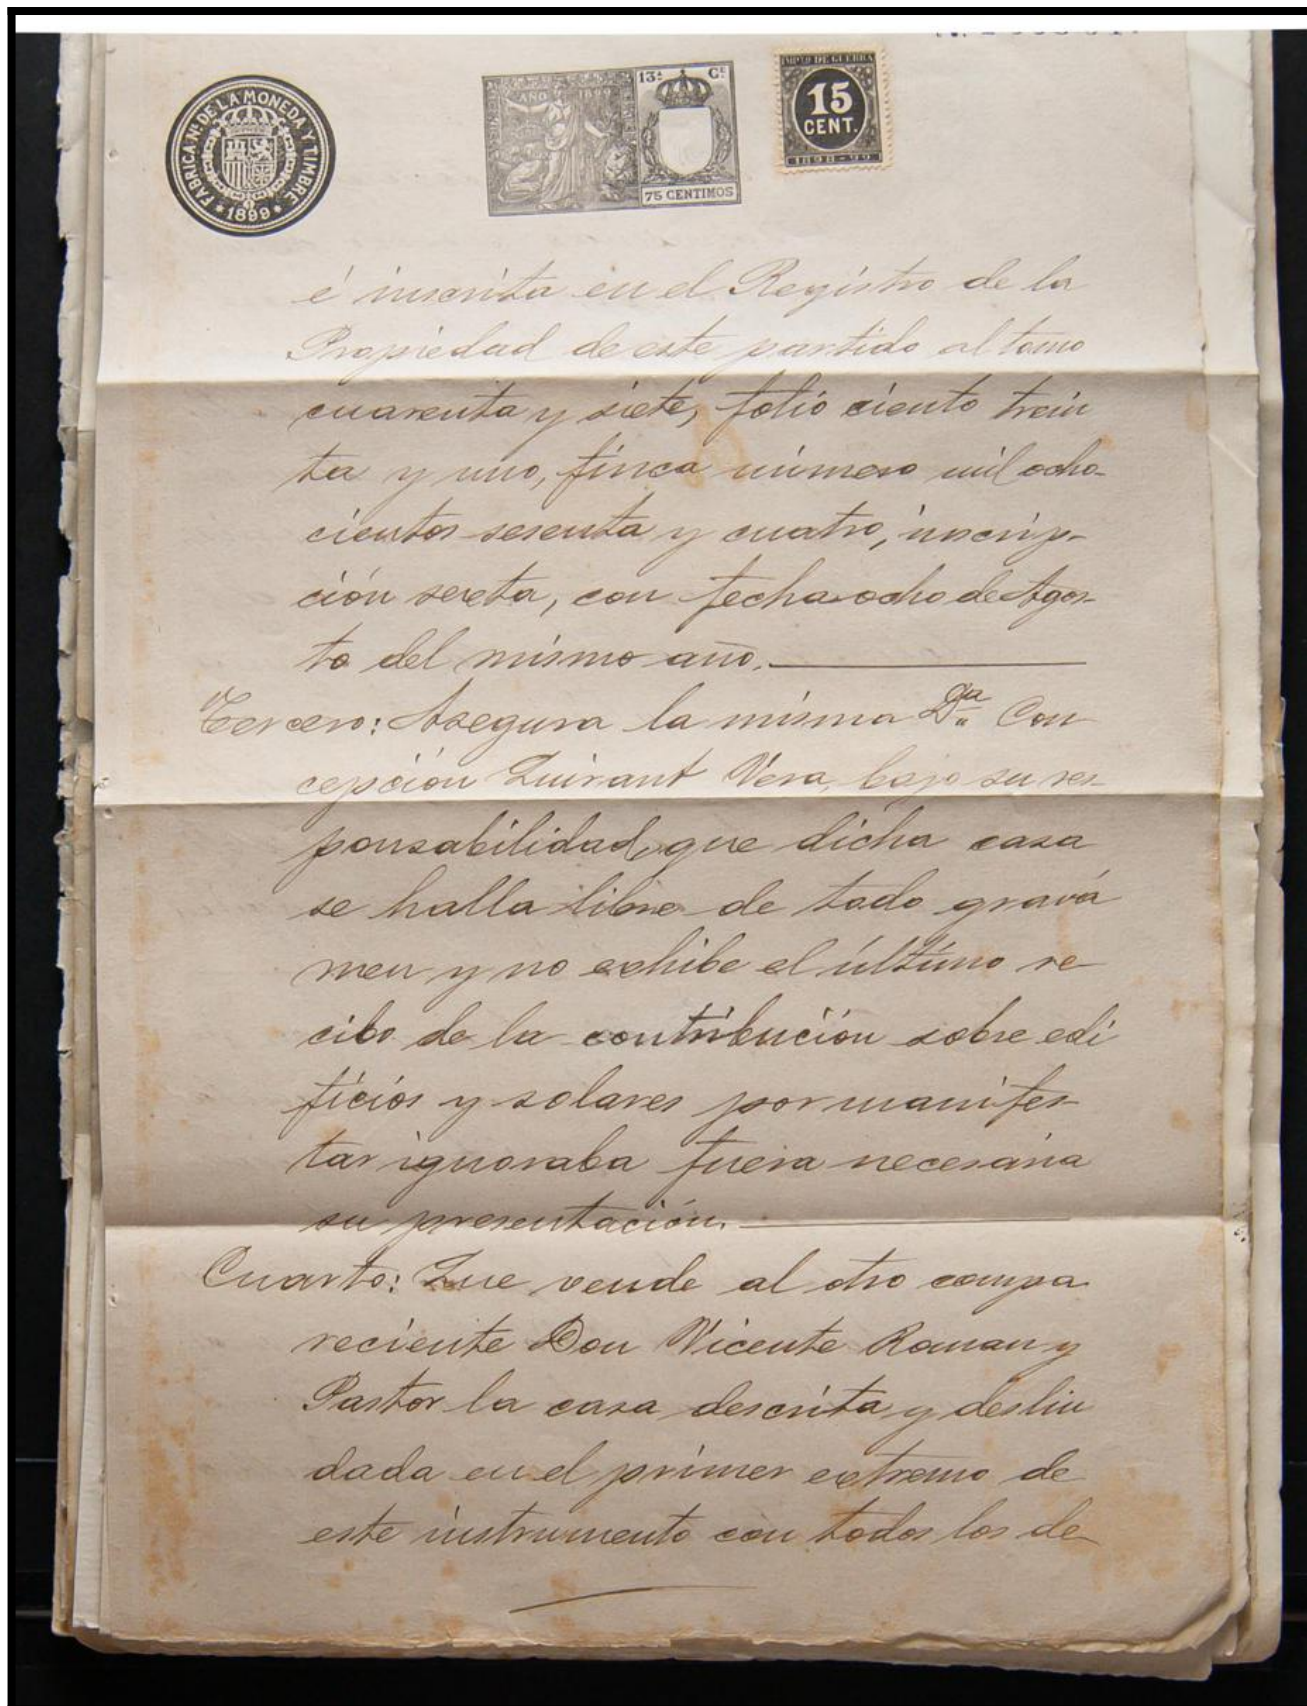 FABRICA Nᴸ DE LA MONEDA Y TIMBRE
* 1899 *
AÑO 1899
13ª Cᴱ
75 CENTIMOS
IMPTO DE GUERRA
15
CENT.
1898-99
é inscrita en el Registro de la
Propiedad de este partido al tomo
cuarenta y siete, folio ciento trein
ta y uno, finca número mil ocho-
cientos sesenta y cuatro, inscrip-
ción sexta, con fecha ocho de Agos-
to del mismo año.
Tercero: Asegura la misma Dª Con
cepción Quirant Vera, bajo su res-
ponsabilidad, que dicha casa
se halla libre de todo gravá
men y no exhibe el último re
cibo de la contribución sobre edi
ficios y solares por manifes-
tar ignoraba fuera necesaria
su presentación.
Cuarto: Que vende al otro compa
reciente Don Vicente Roman y
Pastor la casa descrita y deslin
dada en el primer extremo de
este instrumento con todos los de